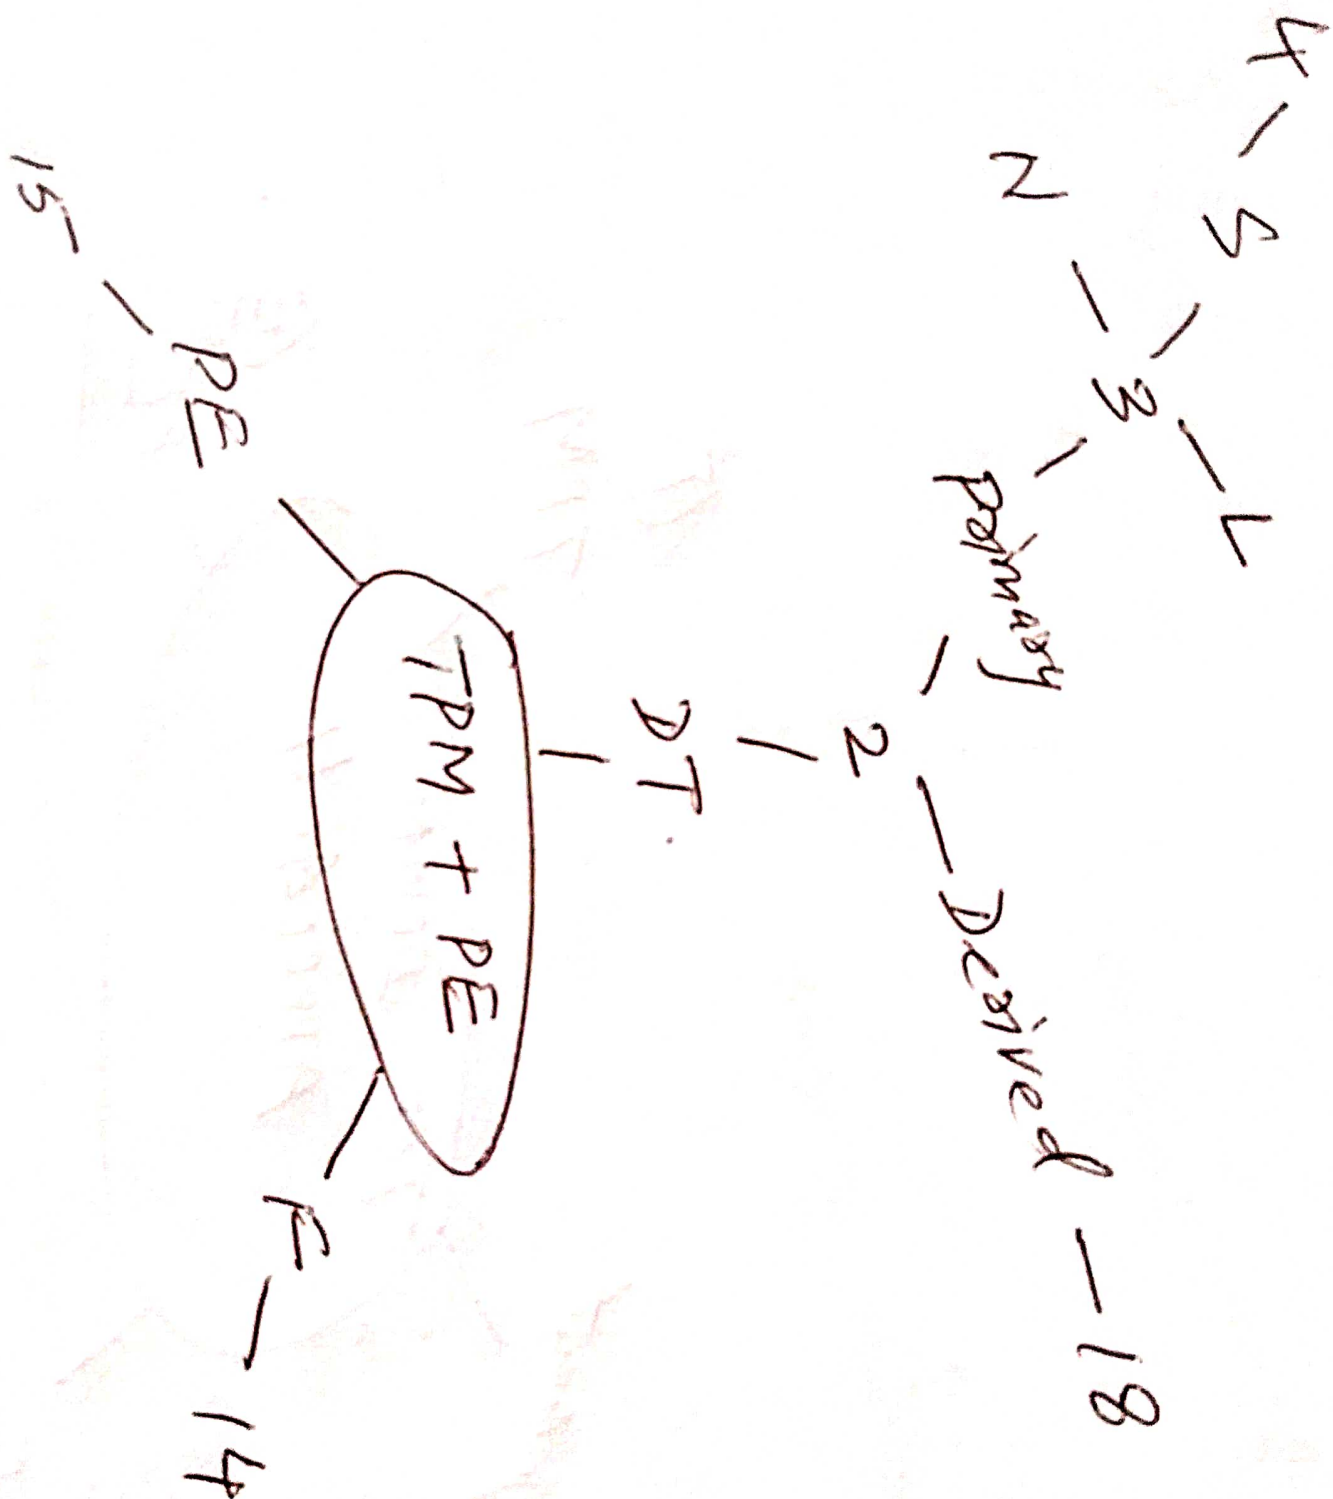 4
S
N
3
L
Primary
2
Derived
18
DT
TPM + PE
PE
15
F
14